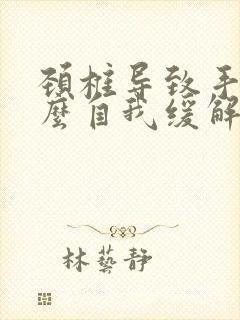 颈椎导致手
麼自我缓解
林藝靜